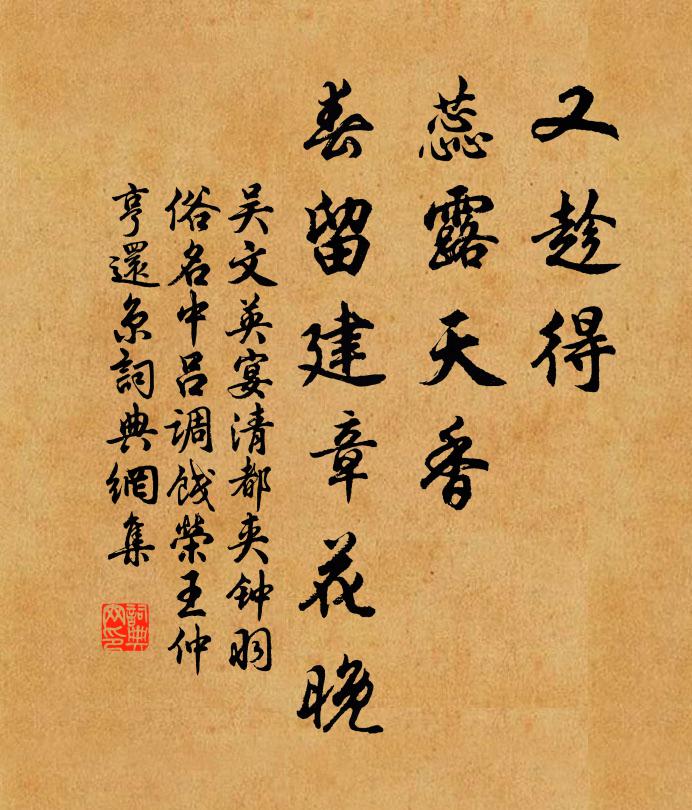 又趁得
蕊露天香
春留建章花晚
吴文英宴清都夹钟羽
俗名中吕调餞榮王仲
亨還京詞典網集
詞典網印